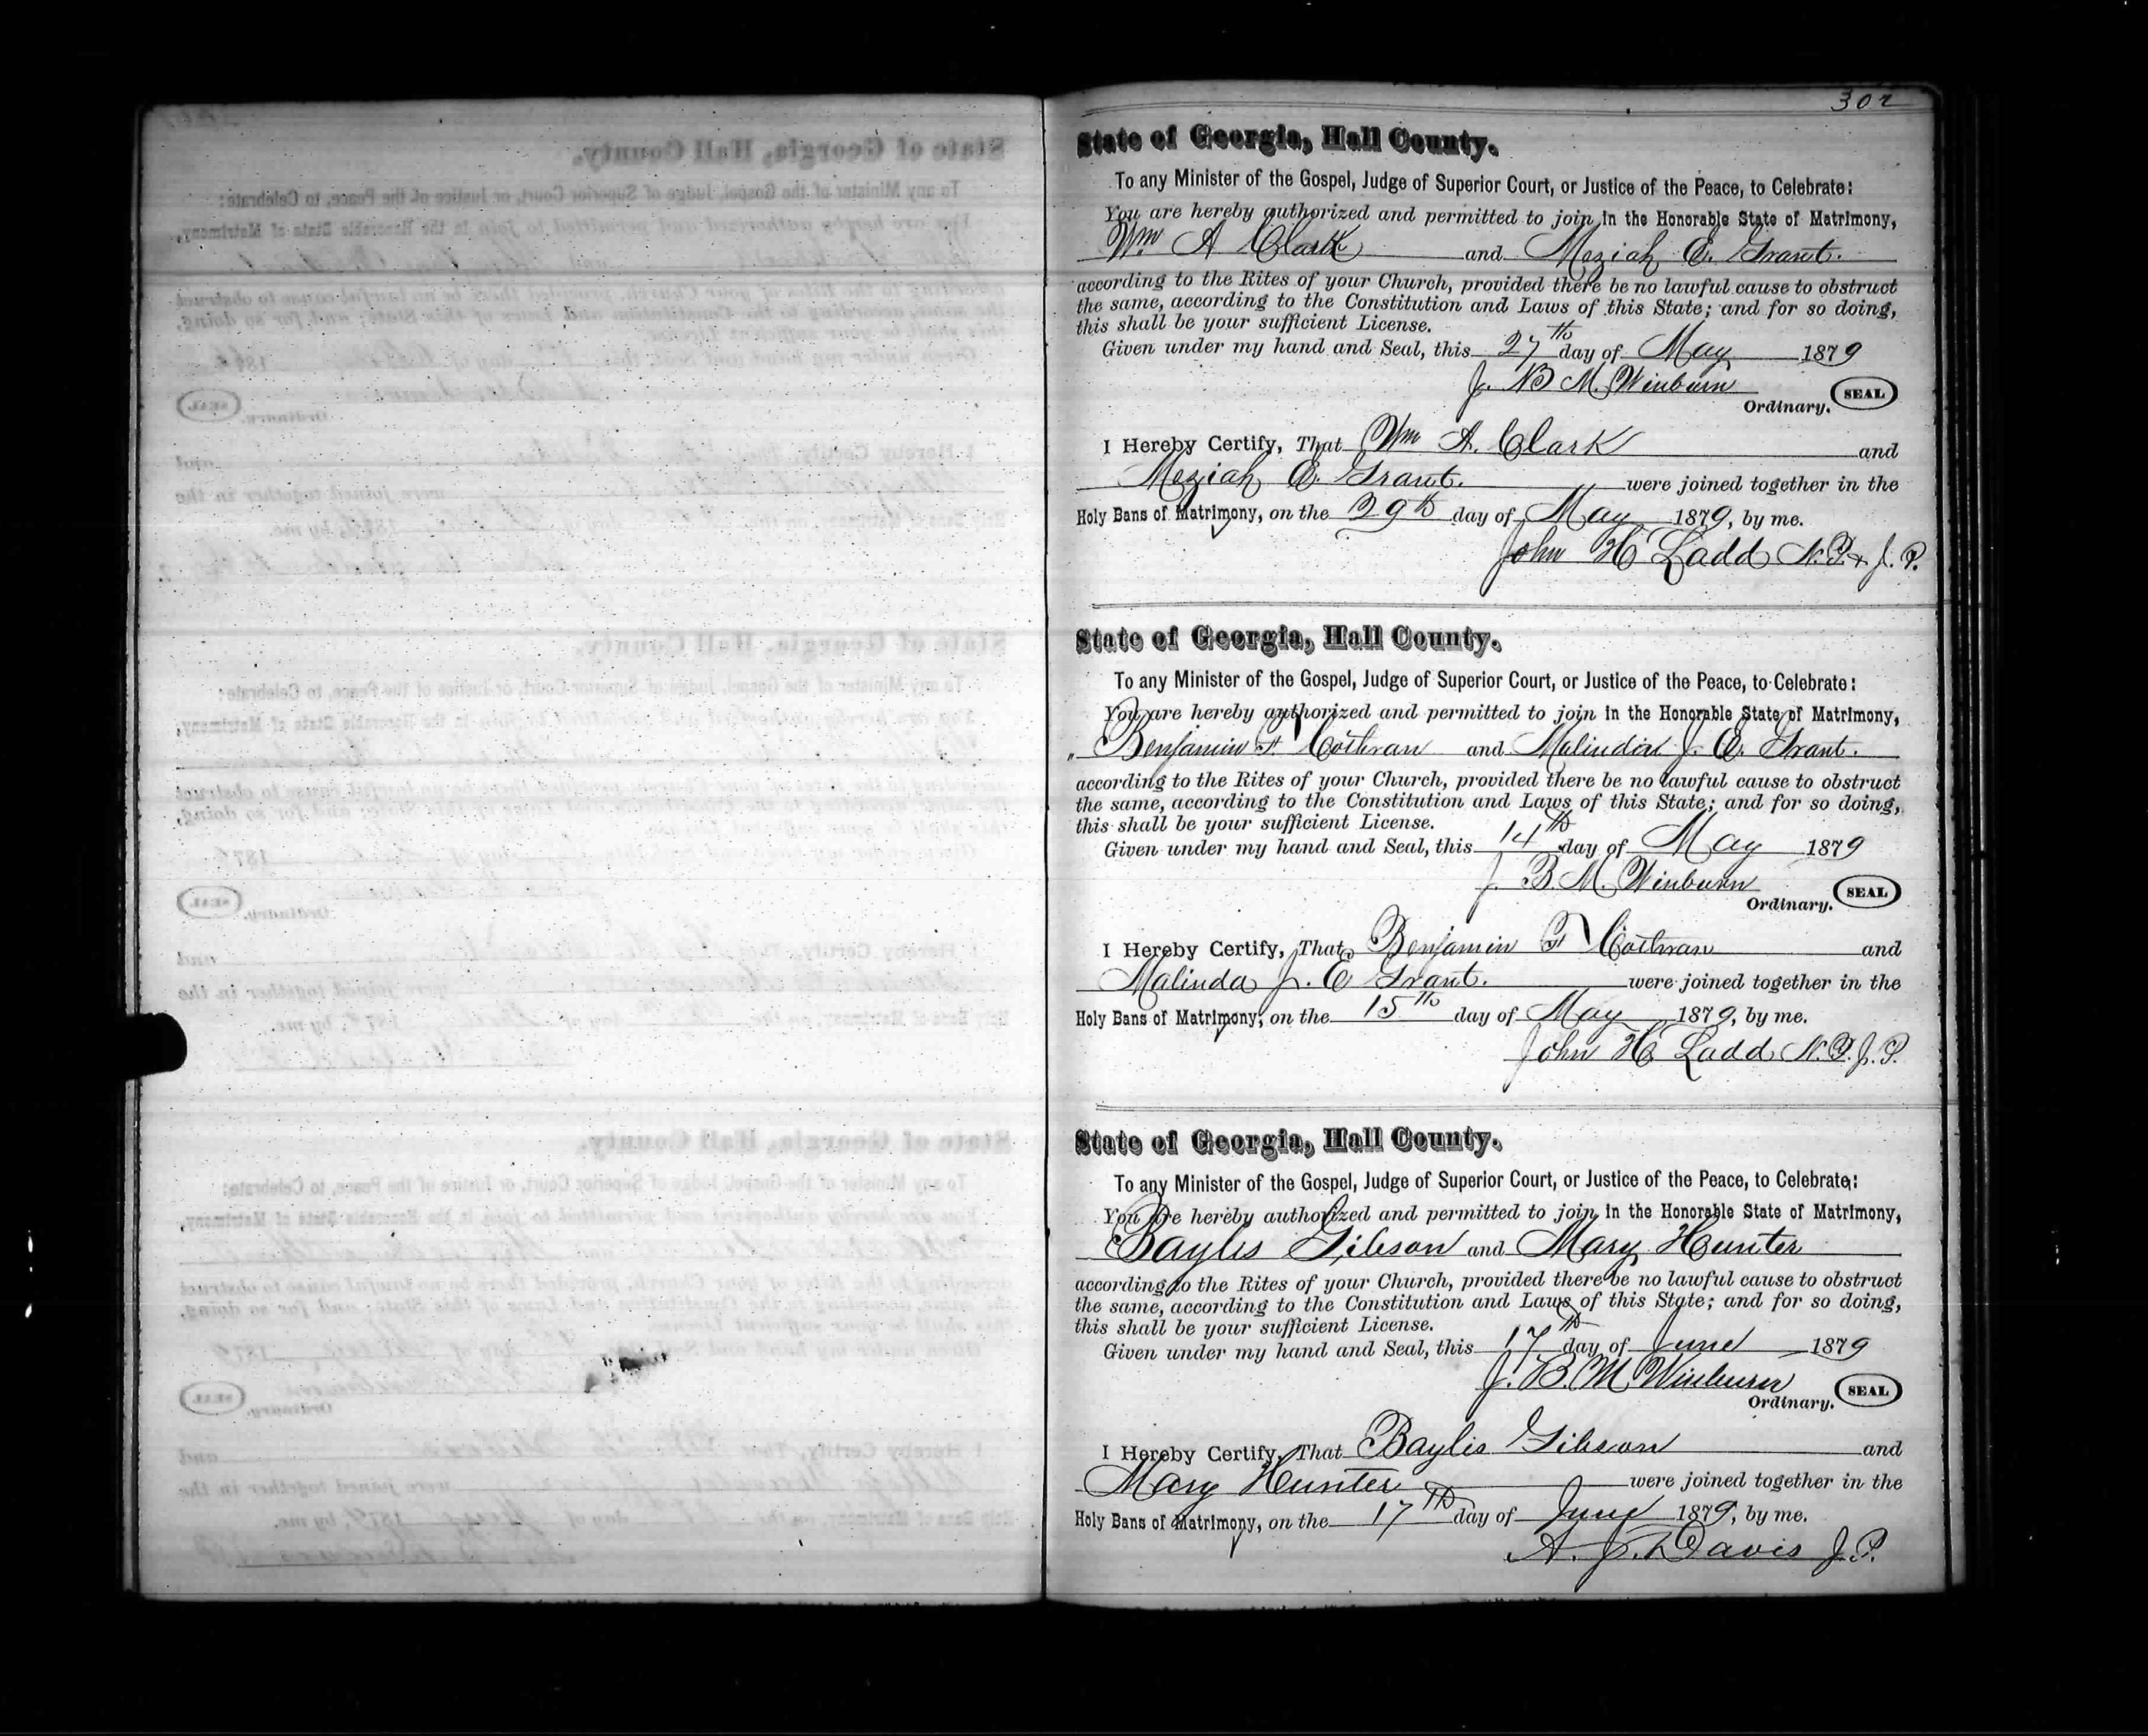 302
State of Georgia, Hall County.
To any Minister of the Gospel, Judge of Superior Court, or Justice of the Peace, to Celebrate:
You are hereby authorized and permitted to join in the Honorable State of Matrimony,
Wm A Clark and Meziah E. Grant.
according to the Rites of your Church, provided there be no lawful cause to obstruct
the same, according to the Constitution and Laws of this State; and for so doing,
this shall be your sufficient License.
Given under my hand and Seal, this 27th day of May 1879
J. B M. Winburn
Ordinary. SEAL
I Hereby Certify, That Wm A. Clark and
Meziah E. Grant. were joined together in the
Holy Bans of Matrimony, on the 29th day of May 1879, by me.
John H Ladd N.P. & J.P.
State of Georgia, Hall County.
To any Minister of the Gospel, Judge of Superior Court, or Justice of the Peace, to Celebrate:
You are hereby authorized and permitted to join in the Honorable State of Matrimony,
Benjamin F. Cothran and Malinda J. E. Grant.
according to the Rites of your Church, provided there be no lawful cause to obstruct
the same, according to the Constitution and Laws of this State; and for so doing,
this shall be your sufficient License.
Given under my hand and Seal, this 14th day of May 1879
J. B. M. Winburn
Ordinary. SEAL
I Hereby Certify, That Benjamin F Cothran and
Malinda J. E Grant. were joined together in the
Holy Bans of Matrimony, on the 15th day of May 1879, by me.
John H Ladd N.P. J.P.
State of Georgia, Hall County.
To any Minister of the Gospel, Judge of Superior Court, or Justice of the Peace, to Celebrate:
You are hereby authorized and permitted to join in the Honorable State of Matrimony,
Baylis Gibson and Mary Hunter
according to the Rites of your Church, provided there be no lawful cause to obstruct
the same, according to the Constitution and Laws of this State; and for so doing,
this shall be your sufficient License.
Given under my hand and Seal, this 17th day of June 1879
J. B. M Winburn
Ordinary. SEAL
I Hereby Certify, That Baylis Gibson and
Mary Hunter were joined together in the
Holy Bans of Matrimony, on the 17th day of June 1879, by me.
A. J. Davis J.P.